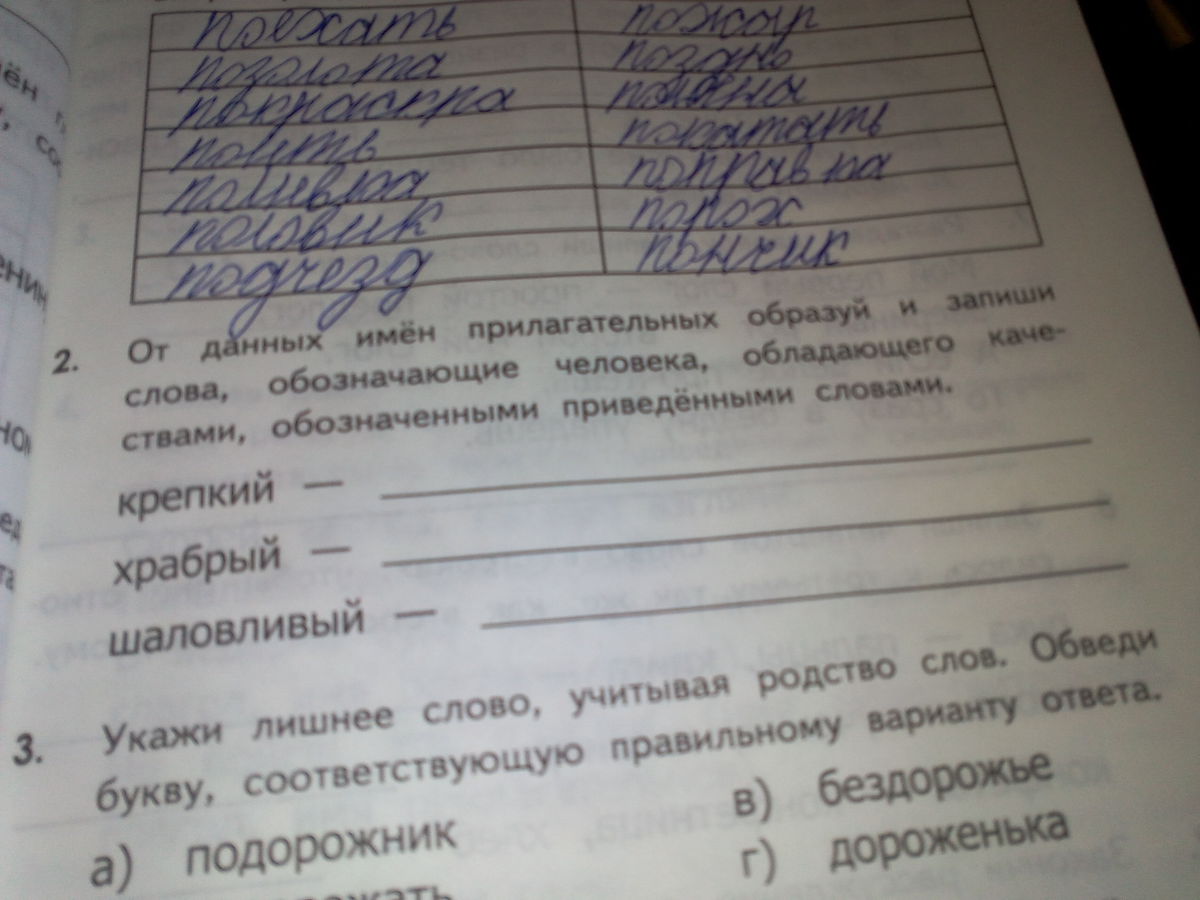 поехать пожар
позолота поздно
покраска поляна
полить покатать
поливка поправка
половик порох
подъезд пончик
2. От данных имён прилагательных образуй и запиши
слова, обозначающие человека, обладающего каче-
ствами, обозначенными приведёнными словами.
крепкий —
храбрый —
шаловливый —
3. Укажи лишнее слово, учитывая родство слов. Обведи
букву, соответствующую правильному варианту ответа.
а) подорожник в) бездорожье
г) дороженька